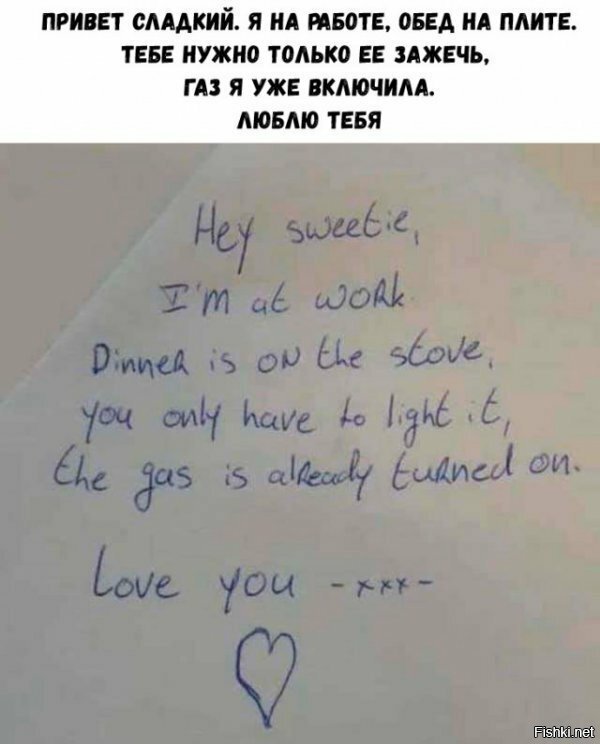 ПРИВЕТ СЛАДКИЙ. Я НА РАБОТЕ, ОБЕД НА ПЛИТЕ.
ТЕБЕ НУЖНО ТОЛЬКО ЕЕ ЗАЖЕЧЬ,
ГАЗ Я УЖЕ ВКЛЮЧИЛА.
ЛЮБЛЮ ТЕБЯ
Hey sweetie,
I'm at work.
Dinner is on the stove,
you only have to light it,
the gas is already turned on.
Love you -xxx-
Fishki.net